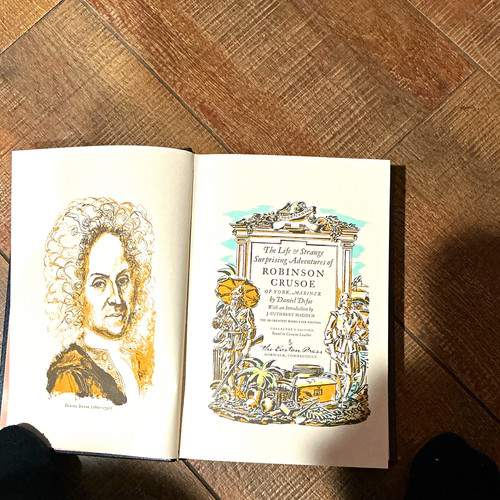 The Life & Strange
Surprising Adventures of
ROBINSON
CRUSOE
OF YORK, MARINER
by Daniel Defoe
With an Introduction by
J. CUTHBERT HADDEN
THE 100 GREATEST BOOKS EVER WRITTEN
COLLECTOR'S EDITION
Bound in Genuine Leather
The Easton Press
NORWALK, CONNECTICUT